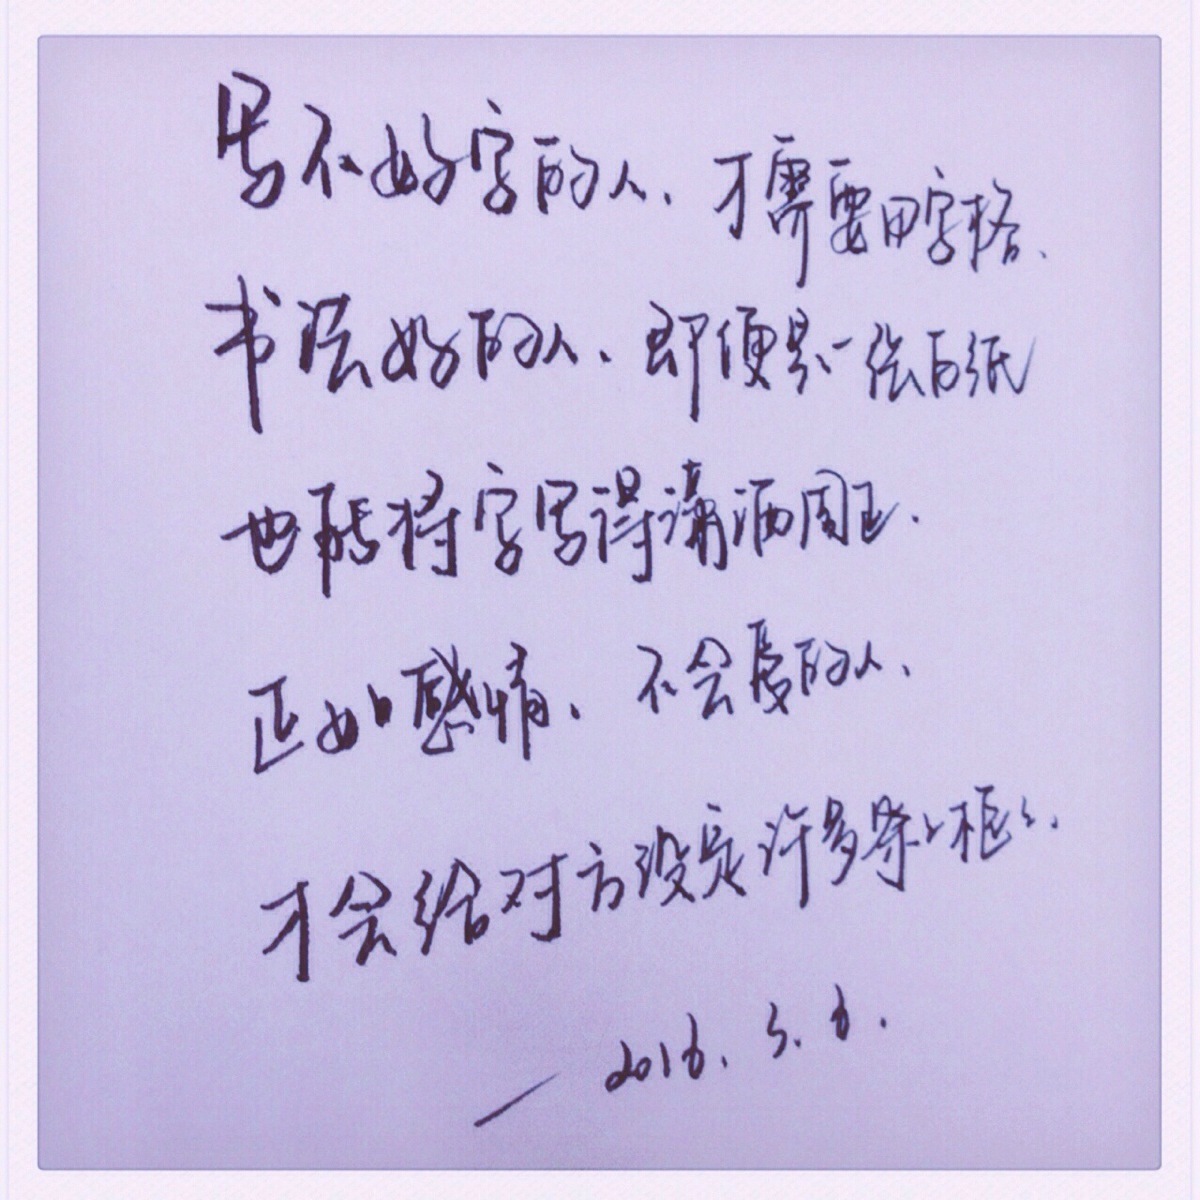 写不好字的人、才需要田字格、
书法好的人、即便是一张白纸
也能将字写得潇洒周正.
正如感情、不会爱的人、
才会给对方设定许多条条框框.
— 2016. 5. 6.